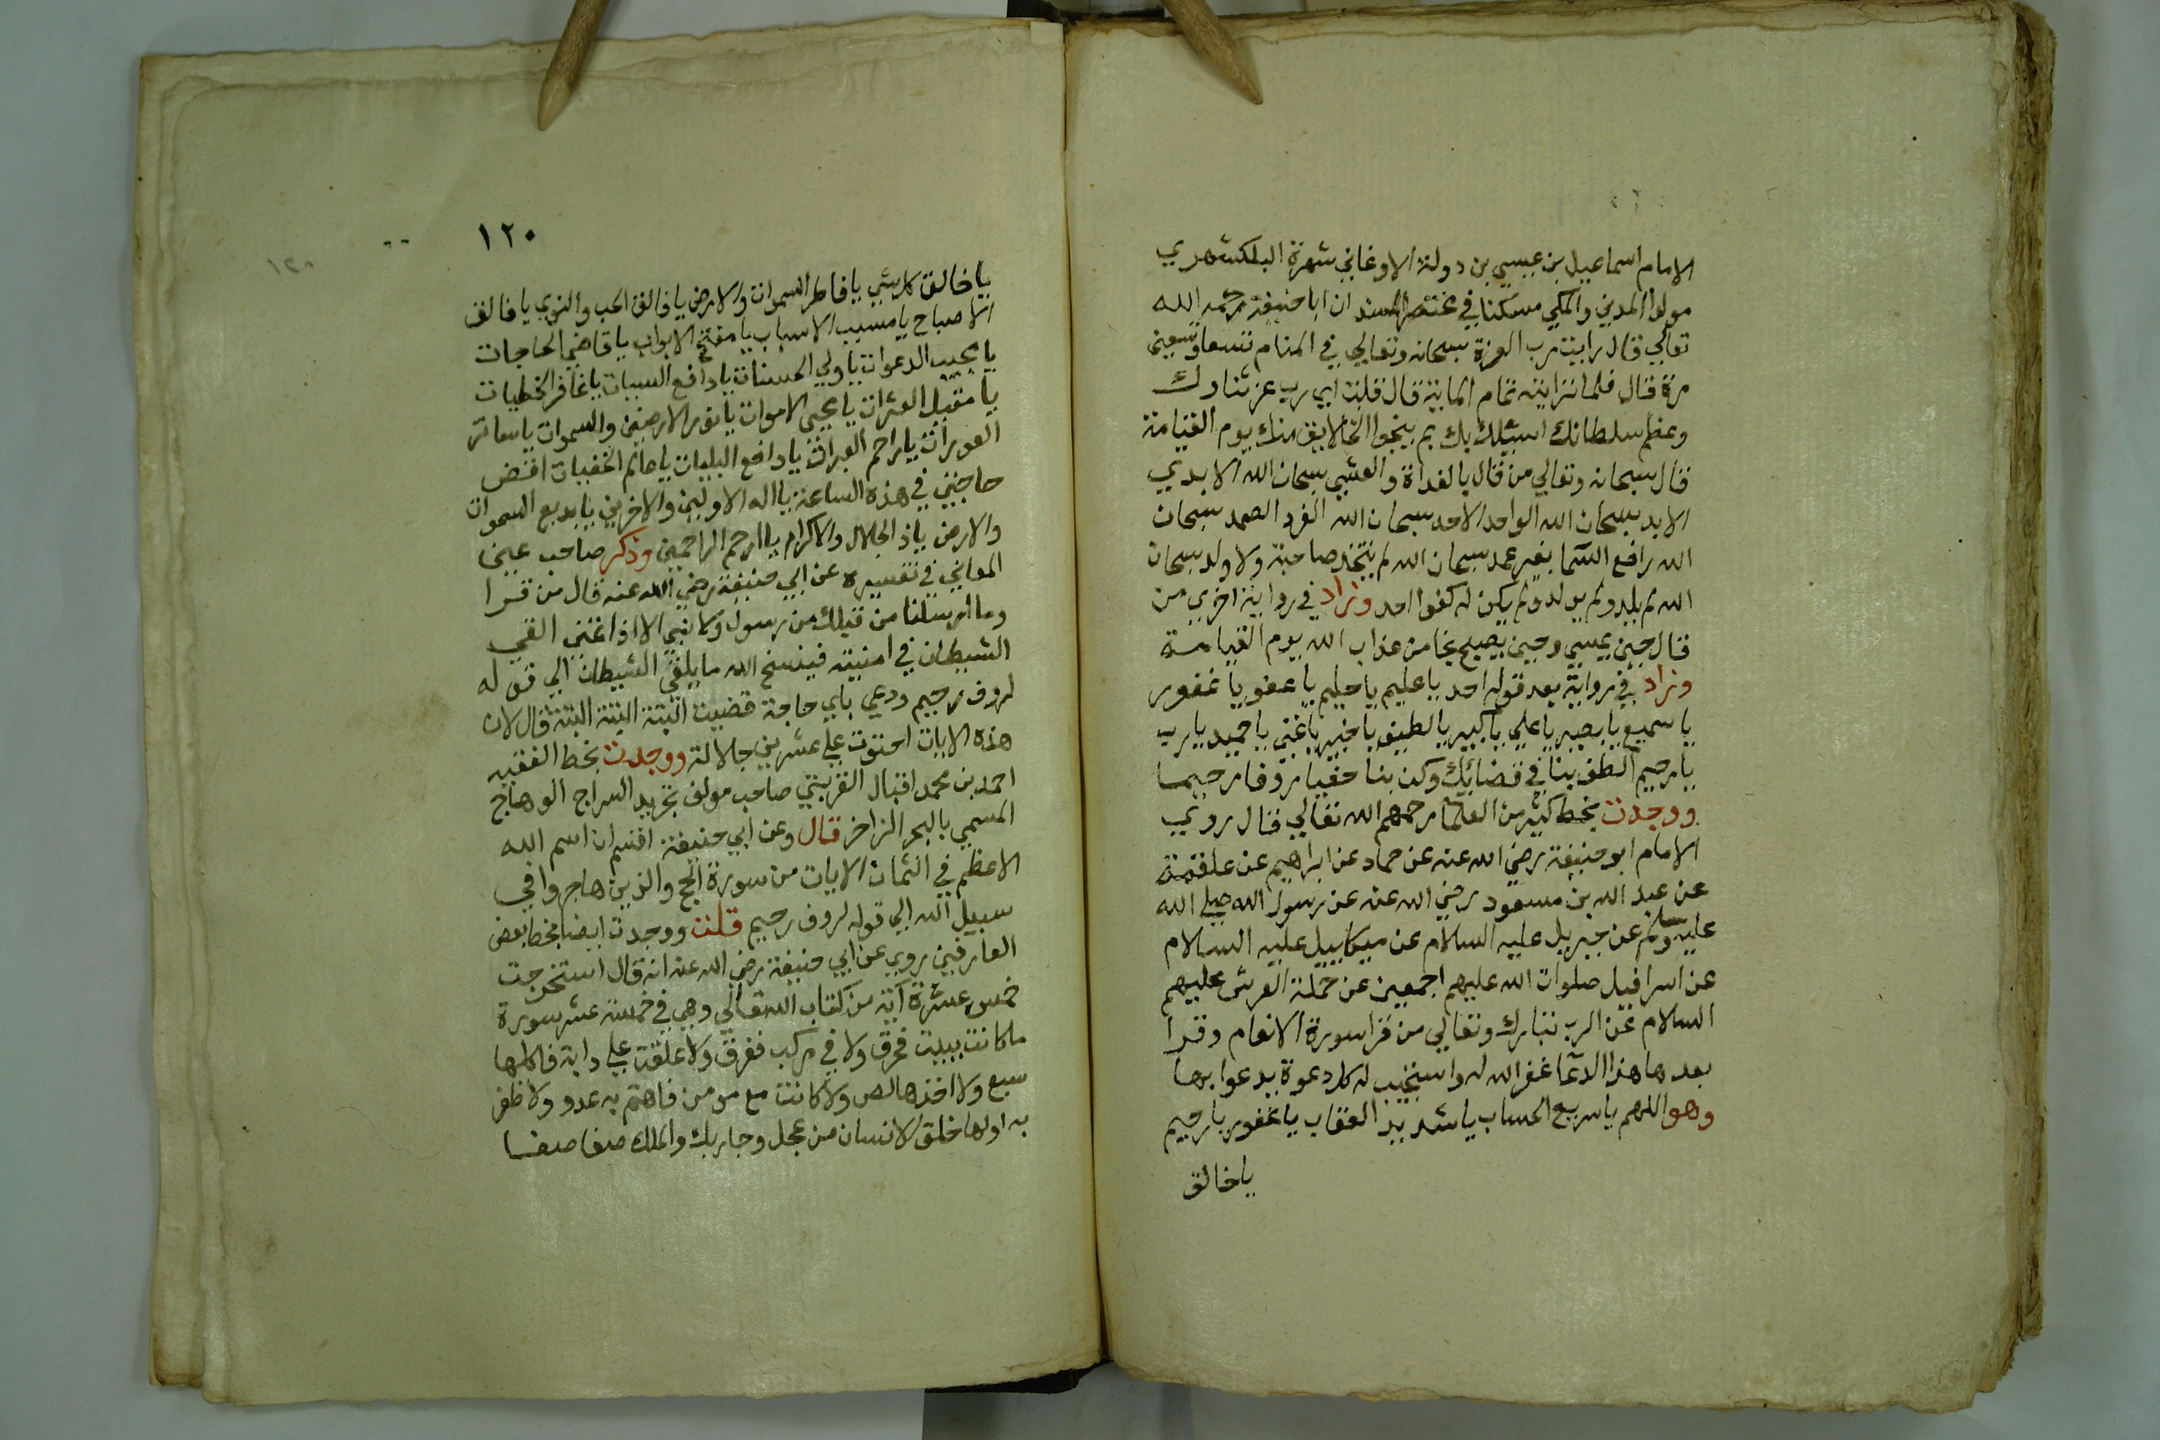 الامام اسماعيل بن عيسي بن دولة الاوغاني شهرة البلكشهري
مولدا المدني والمكي مسكنا في مختصر المسند ان ابا حنيفة رحمه الله
تعالي قال رايت رب العزة سبحانه وتعالي في المنام تسعا وتسعين
مرة قال فلما تزاينه تمام الماية قال قلت اي رب عز ثناوك
وعظم سلطانك اسئلك بك بم ينجوا الخلايق منك يوم القيامة
قال سبحانه وتعالي من قال بالغداة والعشي سبحان الله الابدي
الابد سبحان الله الواحد الاحد سبحان الله الفرد الصمد سبحان
الله رافع السما بغير عمد سبحان الله لم يتخذ صاحبة ولا ولد سبحان
الله لم يلد ولم يولد ولم يكن له كفوا احد وزاد في رواية اخري من
قال حين يمسي وحين يصبح نجا من عذاب الله يوم القيامة
وزاد في رواية بعد قوله احد يا عليم يا حليم يا عفو يا غفور
يا سميع يا بصير يا علي يا كبير يا لطيف يا خبير يا غني يا حميد يا رب
يا رحيم الطف بنا في قضائك وكن بنا حفيا روفا رحيما
ووجدت بخط كثير من العلما رحمهم الله تعالي قال روي
الامام ابو حنيفة رضي الله عنه عن حماد عن ابراهيم عن علقمة
عن عبد الله بن مسعود رضي الله عنه عن رسول الله صلي الله
عليه وسلم عن جبريل عليه السلام عن ميكاييل عليه السلام
عن اسرافيل صلوات الله عليهم اجمعين عن حملة العرش عليهم
السلام عن الرب تبارك وتعالي من قرا سورة الانعام وقرا
بعدها هذا الدعا غفر الله له واستجيب له كل دعوة يدعوا بها
وهو اللهم يا سريع الحساب يا شديد العقاب يا غفور يا رحيم
يا خالق
١٢٠
يا خالق كل شي يا فاطر السموات والارض يا فالق الحب والنوي يا فالق
الاصباح يا مسبب الاسباب يا مفتح الابواب يا قاضي الحاجات
يا مجيب الدعوات يا ولي الحسنات يا دافع السيات يا غافر الخطيات
يا مقيل العثرات يا محيي الاموات يا نور الارضين والسموات يا ساتر
العورات يا راحم العبرات يا دافع البليات يا عالم الخفيات اقض
حاجتي في هذه الساعة يا اله الاولين والاخرين يا بديع السموات
والارض يا ذا الجلال والاكرام يا ارحم الراحمين وذكر صاحب عين
المعاني في تفسيره عن ابي حنيفة رضي الله عنه قال من قرا
وما ارسلنا من قبلك من رسول ولا نبي الا اذا تمني القي
الشيطان في امنيته فينسخ الله ما يلقي الشيطان الي قوله
لروف رحيم ودعي باي حاجة قضيت البتة البتة البتة قال لان
هذه الايات احتوت علي عشرين جلالة ووجدت بخط الفقيه
احمد بن محمد اقبال القريتي صاحب مولف تجريد السراج الوهاج
المسمي بالبحر الزاخر قال وعن ابي حنيفة اقسم ان اسم الله
الاعظم في الثمان الايات من سورة الحج والذين هاجروا في
سبيل الله الي قوله لروف رحيم قلت ووجدت ايضا بخط بعض
العارفين روي عن ابي حنيفة رضي الله عنه انه قال استخرجت
خمس عشرة آية من كتاب الله تعالي وهي في خمسة عشر سورة
ما كانت ببيت فحرق ولا في مركب فغرق ولا علقت علي دابة فاكلها
سبع ولا اخذها لص ولا كانت مع مومن فاهتم به عدو ولا ظفر
به اولها خلق الانسان من عجل وجا ربك والملك صفا صفا